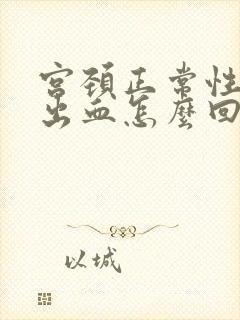 宫頚正常性
出血怎麼回
以城